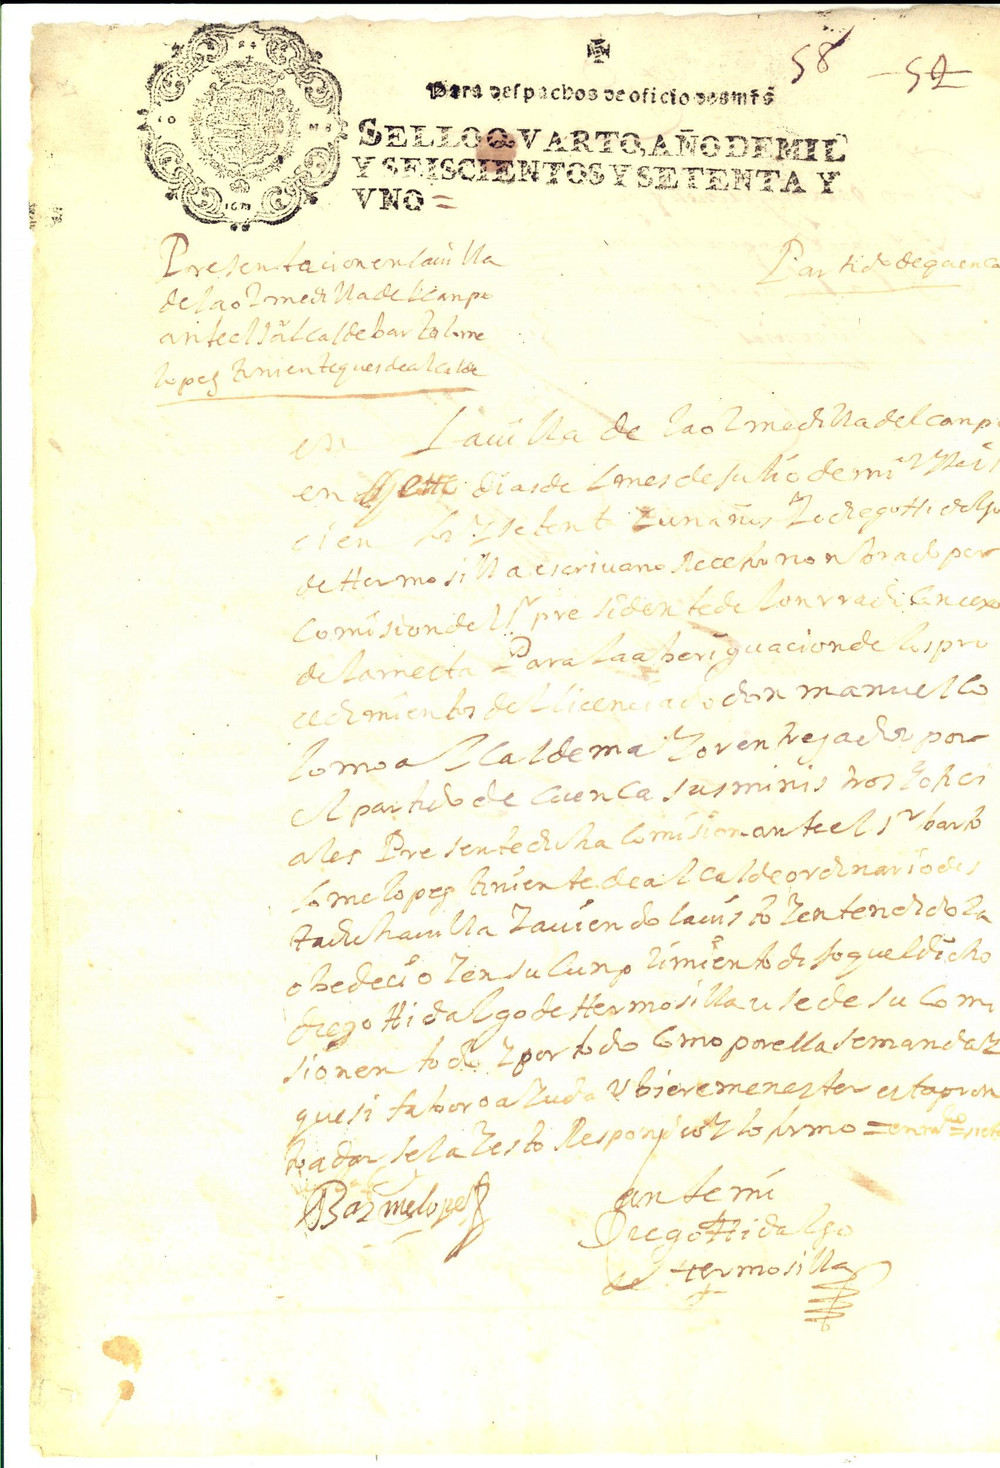 58 52
Para despachos de oficio dos mrs
SELLO QVARTO, AÑO DE MIL
Y SEISCIENTOS Y SETENTA Y
VNO =
1671
Presentacion en la uilla
de la olmedilla del canpo
ante el sr alcalde bartolome
lopez teniente ques de alcalde
Partido de quenca
en La uilla de la olmedilla del canpo
en siete dias del mes de julio de mil y seis
cientos y setenta y un años yo diego Hidalgo
de Hermosilla escriuano Receptor nonbrado por
comision del sr presidente del onrrado Concexo
de la mesta Para la aberiguacion de los pro
cedimientos del licenciado don manuel lo
lomo alcalde mayor entregador por
el partido de cuenca sus ministros y ofici
ales Presente dicha comision ante el sr barto
lome lopez teniente de alcalde ordinario des
ta dicha uilla y auiendola uisto y entendido la
obedecio y en su cunplimiento dijo que el dicho
diego Hidalgo de Hermosilla use de su comi
sion en todo y por todo como por ella se manda y
que si fabor o ayuda ubiere menester esta pron
to a darsela y esto Respondio y lo firmo =
Barme lopez
ante mi
Diego Hidalgo
de Hermosilla